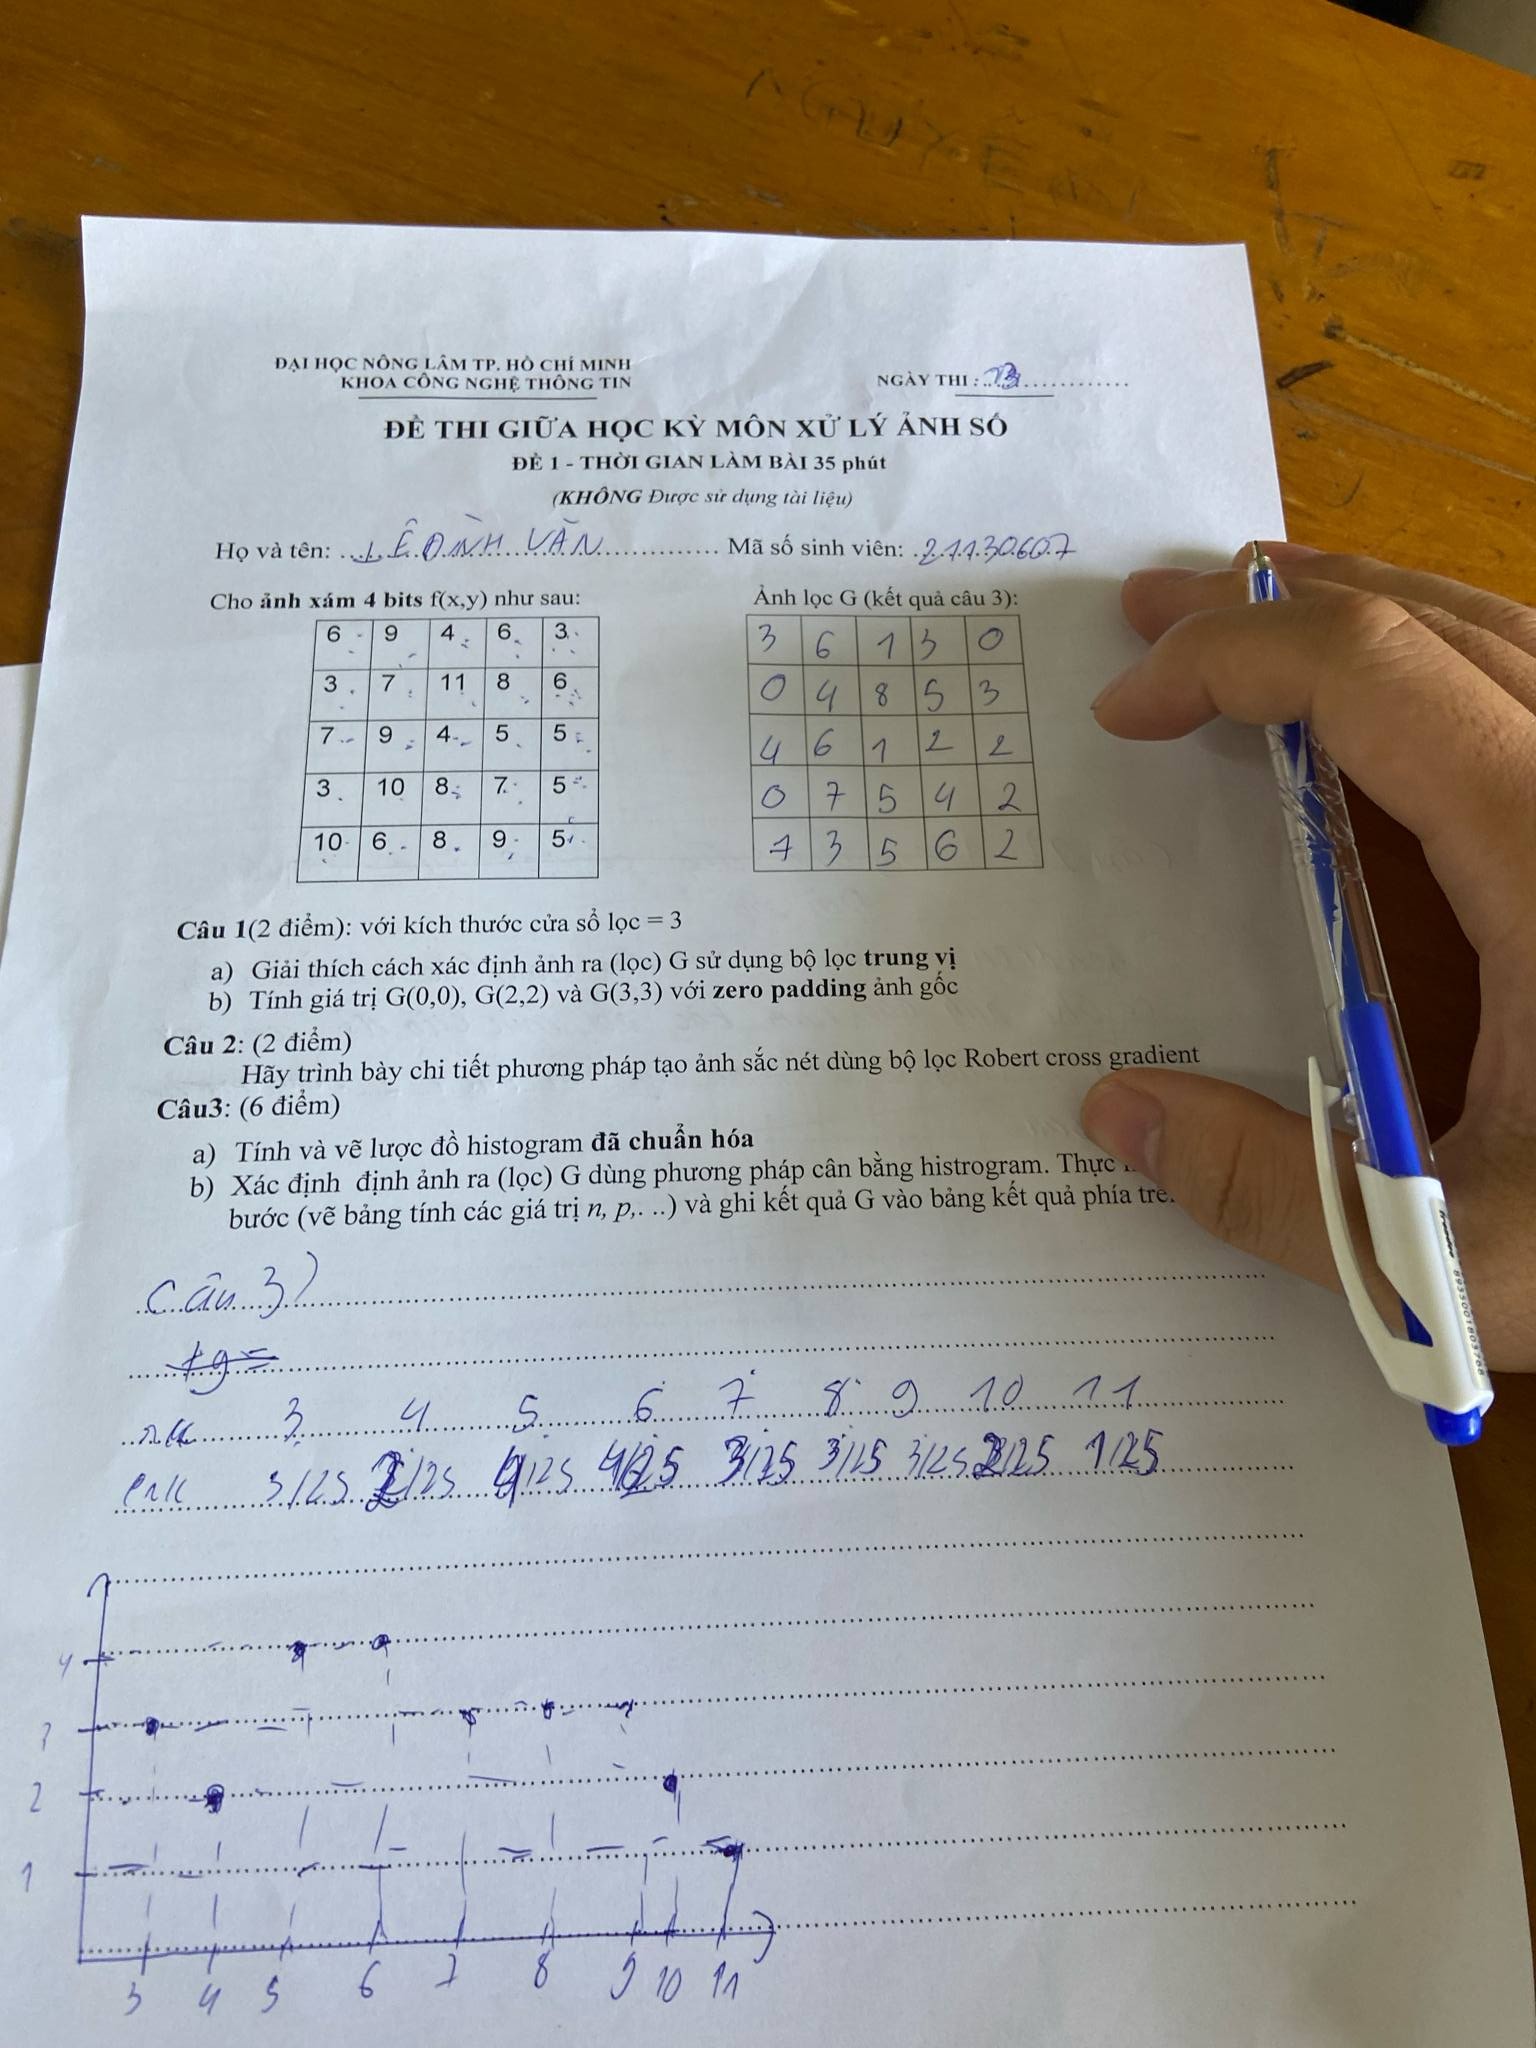 ĐẠI HỌC NÔNG LÂM TP. HỒ CHÍ MINH
KHOA CÔNG NGHỆ THÔNG TIN
NGÀY THI :
ĐỀ THI GIỮA HỌC KỲ MÔN XỬ LÝ ẢNH SỐ
ĐỀ 1 - THỜI GIAN LÀM BÀI 35 phút
(KHÔNG Được sử dụng tài liệu)
Họ và tên: LÊ ĐÌNH VĂN Mã số sinh viên: 21130607
Cho ảnh xám 4 bits f(x,y) như sau:
6 9 4 6 3
3 7 11 8 6
7 9 4 5 5
3 10 8 7 5
10 6 8 9 5
Ảnh lọc G (kết quả câu 3):
3 6 1 3 0
0 4 8 5 3
4 6 1 2 2
0 7 5 4 2
7 3 5 6 2
Câu 1(2 điểm): với kích thước cửa sổ lọc = 3
a) Giải thích cách xác định ảnh ra (lọc) G sử dụng bộ lọc trung vị
b) Tính giá trị G(0,0), G(2,2) và G(3,3) với zero padding ảnh gốc
Câu 2: (2 điểm)
Hãy trình bày chi tiết phương pháp tạo ảnh sắc nét dùng bộ lọc Robert cross gradient
Câu3: (6 điểm)
a) Tính và vẽ lược đồ histogram đã chuẩn hóa
b) Xác định định ảnh ra (lọc) G dùng phương pháp cân bằng histrogram. Thực
bước (vẽ bảng tính các giá trị n, p,. ..) và ghi kết quả G vào bảng kết quả phía
Câu 3)
3 4 5 6 7 8 9 10 11
3/25 2/25 4/25 4/25 3/25 3/25 3/25 2/25 1/25
4
3
2
1
3 4 5 6 7 8 9 10 11